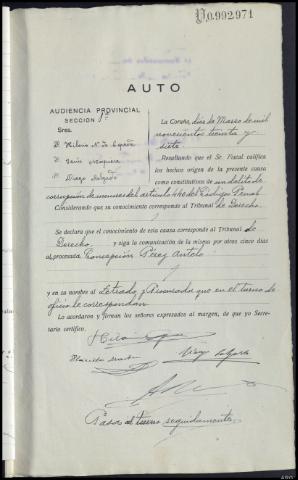 V,0.992971
AUTO
AUDIENCIA PROVINCIAL
SECCION 1ª
Sres.
D. Hilario N. de Cepeda
D.
D. Diego Salgado
La Coruña, dos de Marzo de mil
novecientos treinta y
siete
Resultando que el Sr. Fiscal califica
los hechos origen de la presente causa
como constitutivos de un delito de
corrupción de menores del artículo 440 del Código Penal
Considerando que su conocimiento corresponde al Tribunal de Derecho.
Se declara que el conocimiento de esta causa corresponde al Tribunal de
Derecho, y siga la comunicación de la misma por otros cinco días
al procesado Concepción Pérez Antelo
y en su nombre al Letrado y Procurador que en el turno de
oficio le correspondan
Lo acordaron y firman los señores expresados al margen, de que yo Secretario certifico.
Pasa al turno seguidamente